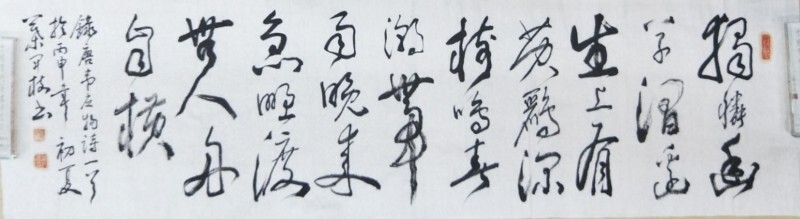 獨憐幽
草澗邊
生上有
黄鸝深
樹鳴春
潮帶
雨晚來
急野渡
無人舟
自橫
錄唐韦应物詩一首
於丙申年初夏
枝书